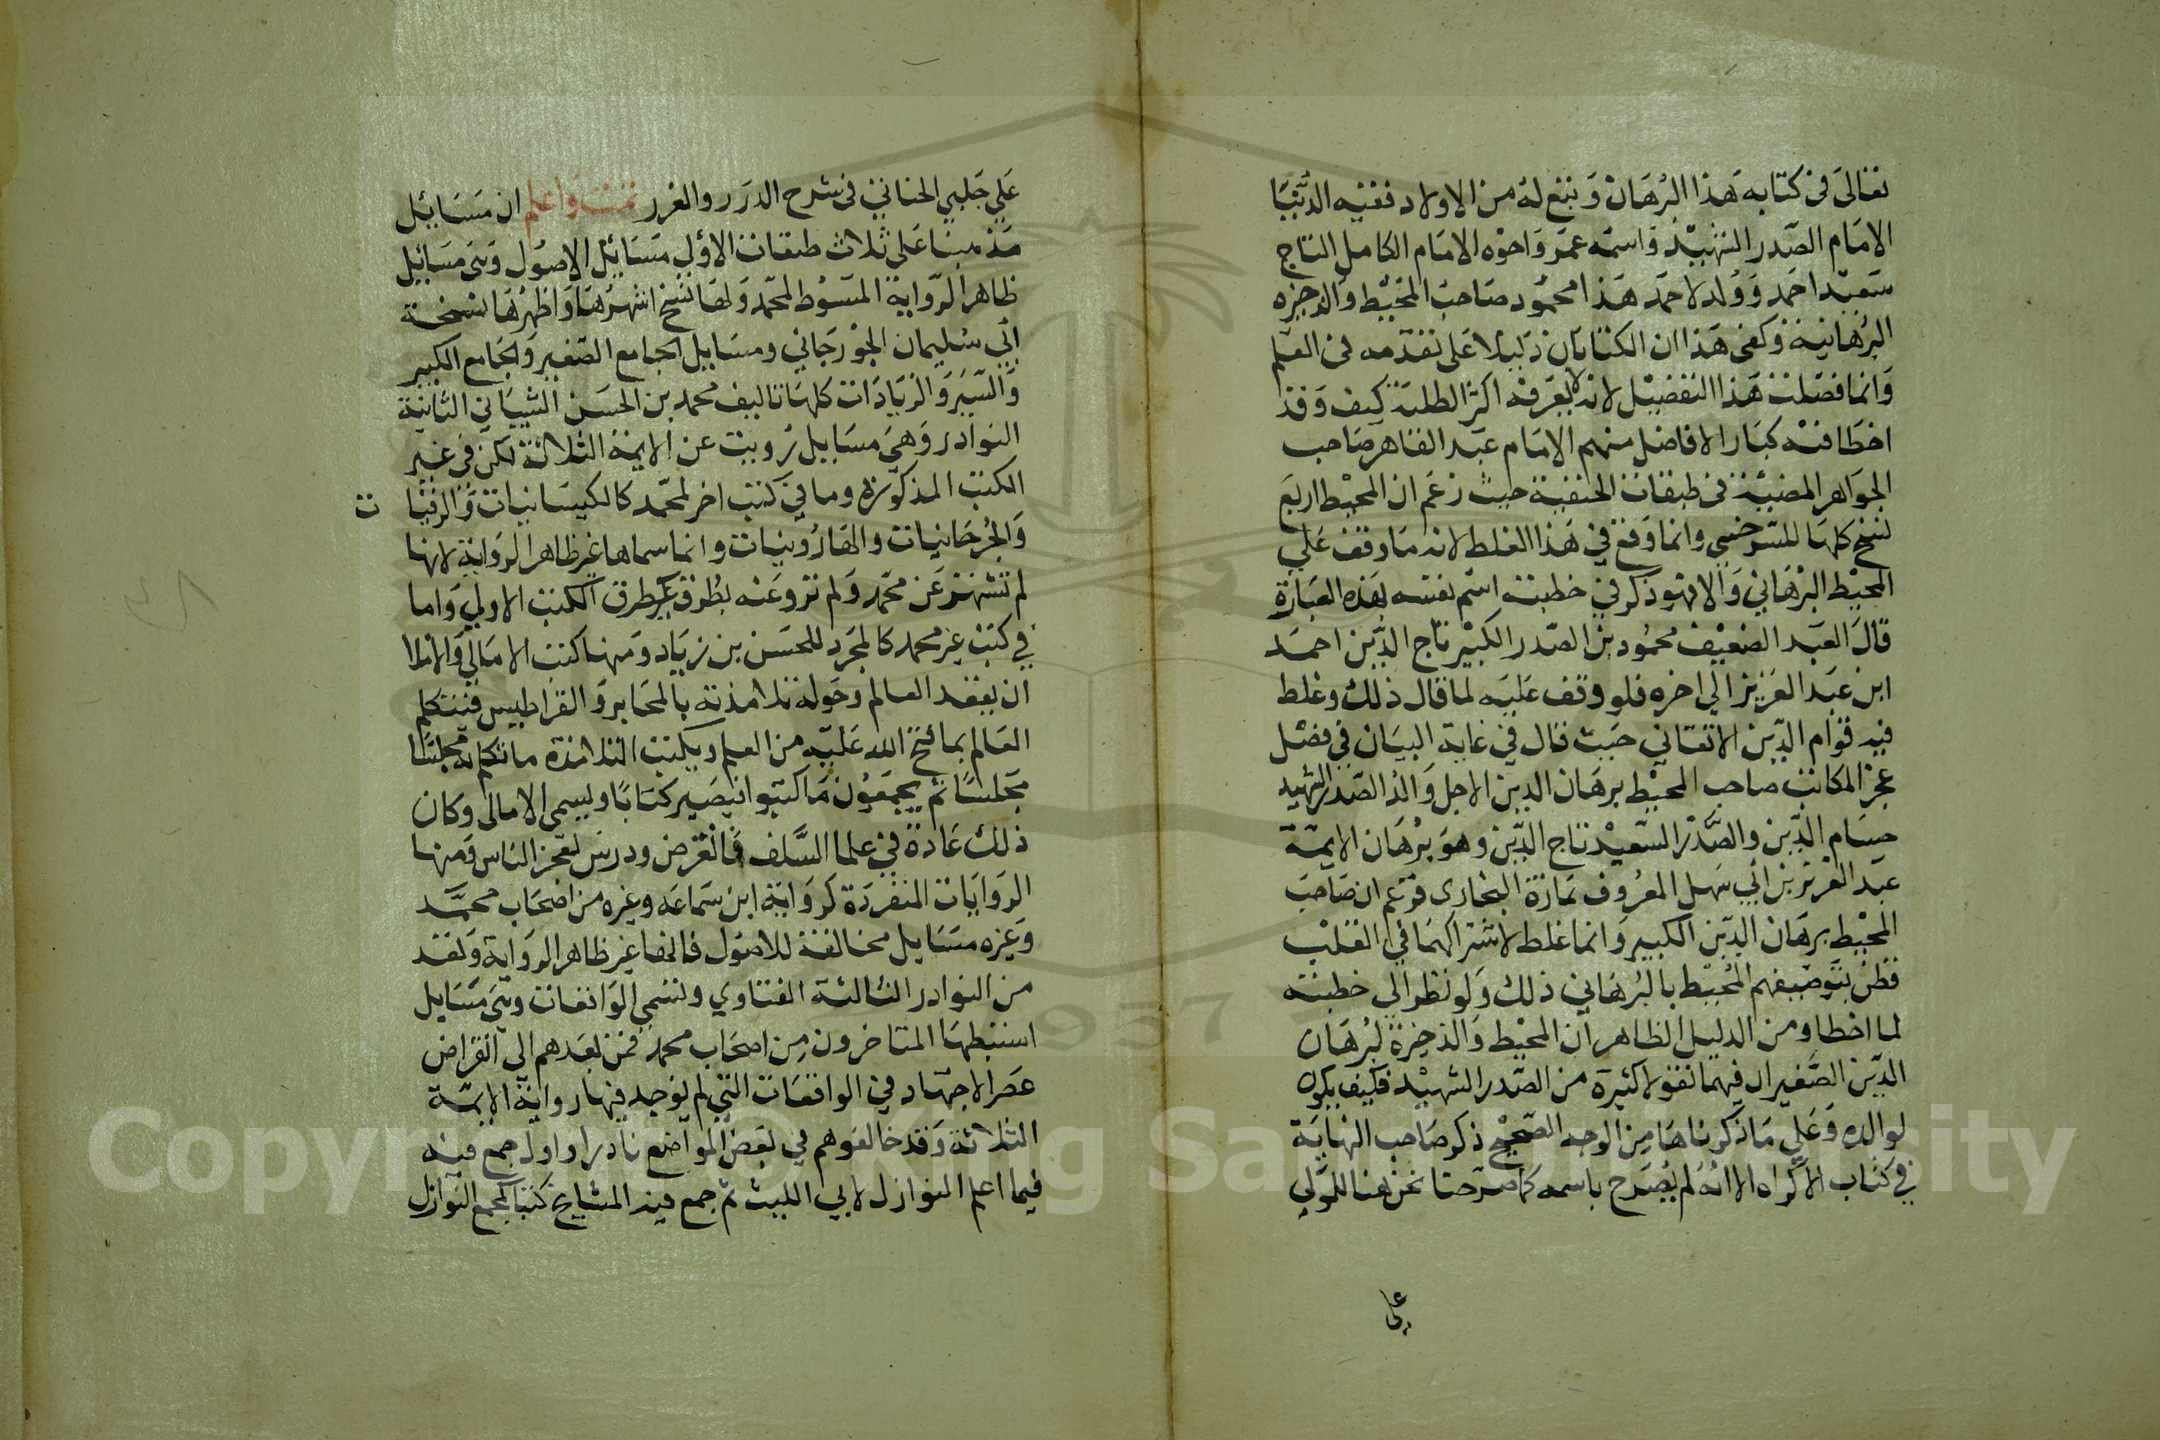 تعالى في كتابه هذا البرهان ونبغ له من الاولاد فقيه الدنيا
الامام الصدر الشهيد واسمه عمر واخوه الامام الكامل التاج
سعيد احمد وولد لاحمد هذا محمود صاحب المحيط والذخيره
البرهانية وكفى هذا ان الكتابان دليلا على تقدمه في العلم
وانما فصلت هذا التفصيل لانه لا يعرفه اكثر الطلبة كيف وقد
اخطا فيه كبار الافاضل منهم الامام عبد القاهر صاحب
الجواهر المضيئة في طبقات الحنفية حيث زعم ان المحيط اربع
نسخ كلها للسرخسي وانما وقع في هذا الغلط لانه ما وقف على
المحيط البرهاني والا فهو ذكر في خطبته اسم نفسه بهذه العبارة
قال العبد الضعيف محمود بن الصدر الكبير تاج الدين احمد
ابن عبد العزيز الى اخره فلو وقف عليه لما قال ذلك وغلط
فيه قوام الدين الاتقاني حيث قال في غاية البيان في فصل
عجز المكاتب صاحب المحيط برهان الدين الاجل والد الصدر الشهيد
حسام الدين والصدر السعيد تاج الدين وهو برهان الايمة
عبد العزيز بن ابي سهل المعروف بمازة البخارى فزعم ان صاحب
المحيط برهان الدين الكبير وانما غلط لاشتراكهما في اللقب
فظن بتوصيفهم المحيط بالبرهاني ذلك ولو نظر الى خطبته
لما اخطا ومن الدليل الظاهر ان المحيط والذخيرة لبرهان
الدين الصغير ان فيهما نقولا كثيرة من الصدر الشهيد فكيف يكون
لوالده وعلى ما ذكرنا هنا من الوجه الصحيح ذكر صاحب النهاية
في كتاب الاكراه الا انه لم يصرح باسمه كما صرحنا نحن تبعنا للمولى
على
على جلبي الحنائي في شرح الدرر والغرر تمت واعلم ان مسائل
مذهبنا على ثلاث طبقات الاول مسائل الاصول وهي مسائل
ظاهر الرواية المبسوط لمحمد ولها نسخ اشهرها واظهرها نسخة
ابي سليمان الجوزجاني ومسايل الجامع الصغير والجامع الكبير
والسير والزيادات كلها تاليف محمد بن الحسن الشيباني الثانية
النوادر وهي مسايل رويت عن الايمة الثلاثة لكن في غير
الكتب المذكورة وما في كتب اخر لمحمد كالكيسانيات والرقيا ت
والجرجانيات والهارونيات وانما سماها غير ظاهر الرواية لانها
لم تشتهر عن محمد ولم ترو عنه بطرق كطرق الكتب الاولى واما
في كتب غير محمد كالمجرد للحسن بن زياد ومنها كتب الامالي والاملا
ان يقعد العالم وحوله تلامذته بالمحابر والقراطيس فيتكلم
العالم بما فتح الله عليه من العلم ويكتب التلامذة ما تكلم به مجلسا
مجلسا ثم يجمعون ما كتبوا فيصير كتابا ويسمى الامالى وكان
ذلك عادة في علما السلف فانقرض ودرس لعجز الناس ومنها
الروايات المنفردة كرواية ابن سماعه وغيره من اصحاب محمد
وغيره مسايل مخالفة للاصول فانها غير ظاهر الرواية وتعد
من النوادر الثالثة الفتاوي وتسمى الواقعات وهي مسايل
استنبطها المتاخرون من اصحاب محمد فمن بعدهم الى انقراض
عصر الاجتهاد في الواقعات التي لم يوجد فيها رواية الايمة
الثلاثة وقد خالفوهم في بعض المواضع نادرا واول جمع فيه
فيما اعلم النوازل لابي الليث ثم جمع فيه المشايخ كتبا كمجمع النوازل
Copyright © King Saud University
1957